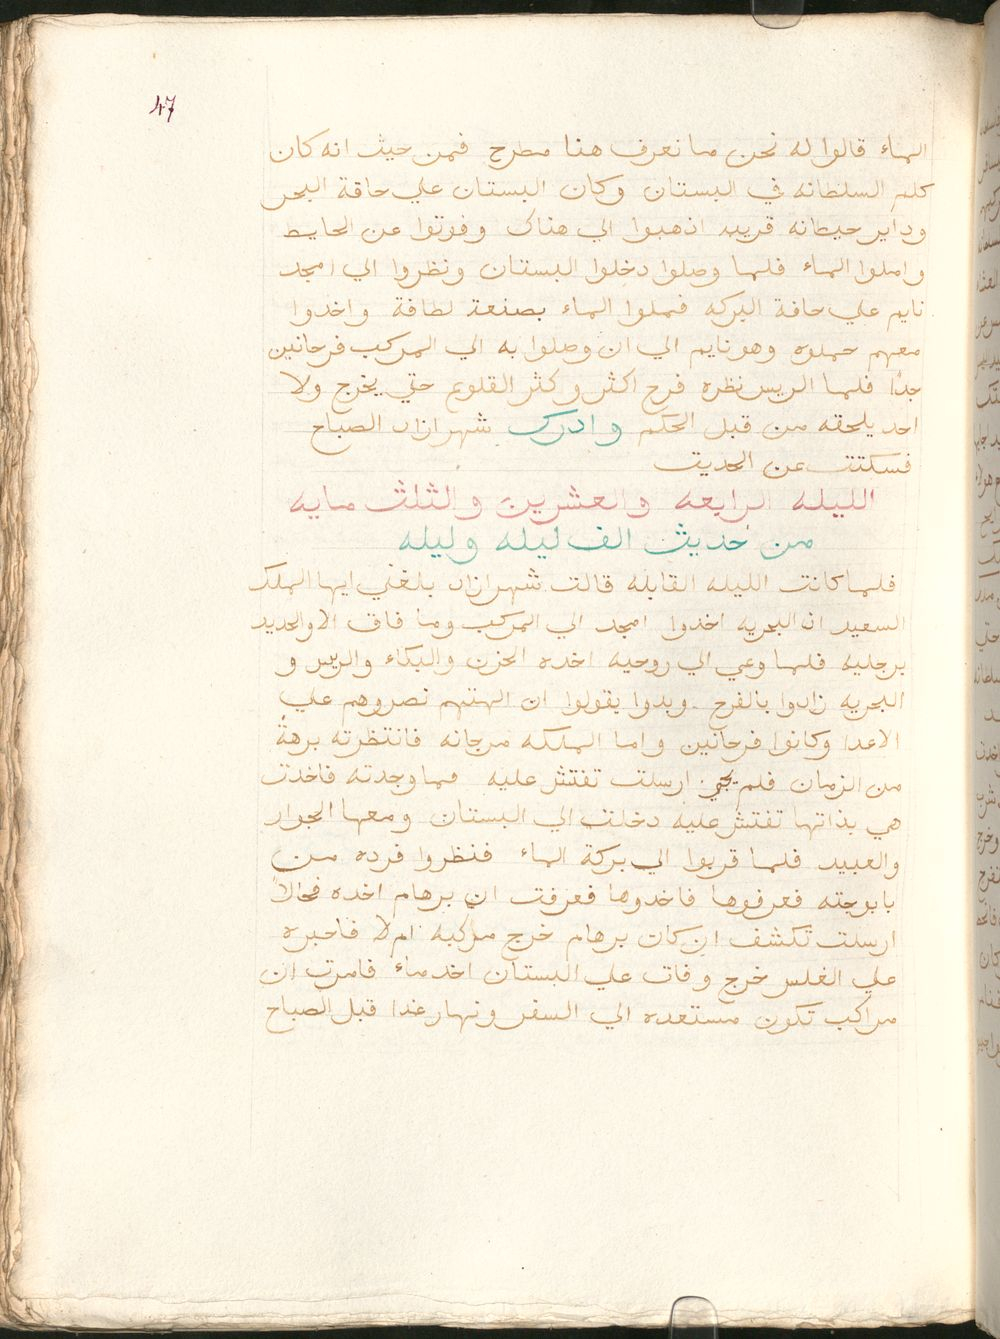 47
الماء قالوا له نحن ما نعرف هنا مطرح فمن حيث انه كان
كلم السلطانه في البستان وكان البستان علي حافة البحر
وداير حيطانه قريب اذهبوا الي هناك وفوتوا عن الحايط
واملوا الماء فلما وصلوا دخلوا البستان ونظروا الي امجد
نايم علي حافة البركه فملوا الماء بصنعة لطافة واخدوا
معهم حملوه وهو نايم الي ان وصلوا به الي المركب فرحانين
جدًا فلما الريس نظره فرح اكثر وكثر القلوع حتي يخرج ولا
احد يلحقه من قبل الحكم وادرك شهرازاد الصباح
فسكتت عن الحديت
الليله الرابعه والعشرين والثلث مايه
من حديث الف ليله وليله
فلما كانت الليله القابله قالت شهرازاد بلغني ايها الملك
السعيد ان البحريه اخدوا امجد الي المركب وما فاق الا والحديد
برجليه فلما وعي الي روحيه اخده الحزن والبكاء والريس و
البحريه زادوا بالفرح وبدوا يقولوا ان الهتهم نصروهم علي
الاعدا وكانوا فرحانين واما الملكه مرجانه فانتظرته برهةً
من الزمان فلم يجي ارسلت تفتش عليه فما وجدته فاخدت
هي بذاتها تفتش عليه دخلت الي البستان ومعها الجوار
والعبيد فلما قربوا الي بركة الماء فنظروا فرده من
بابوجته فعرفوها فاخدوها فعرفت ان برهام اخده فحالاً
ارسلت تكشف ان كان برهام خرج مركبه ام لا فاخبره
علي الغلس خرج وفات علي البستان اخد ماء فامرت ان
مراكب تكون مستعده الي السفر ونهار غدا قبل الصباح